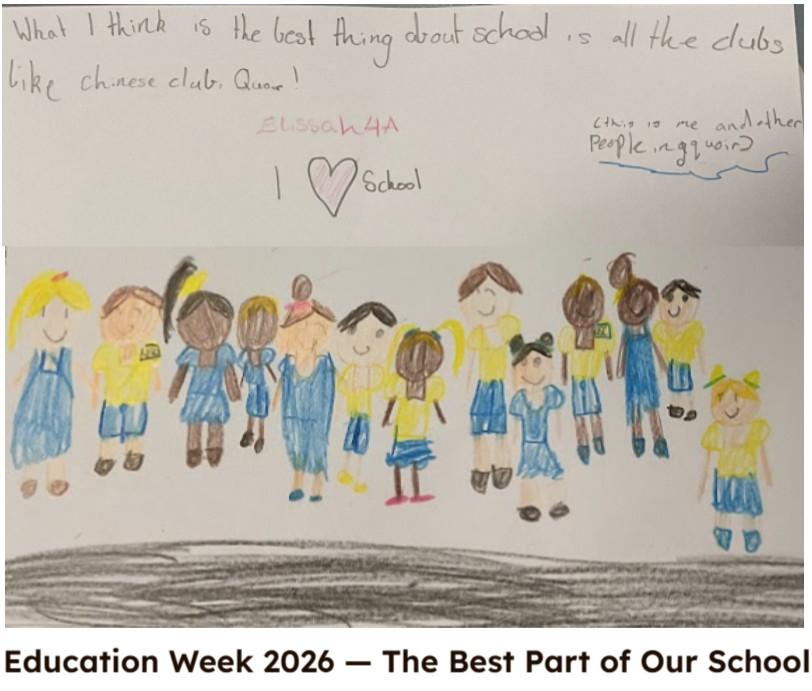 What I think is the best thing about school is all the clubs
like chinese club. Quor!
Elissah 4A
(this is me and other
People in quoir)
I School
Education Week 2026 — The Best Part of Our School